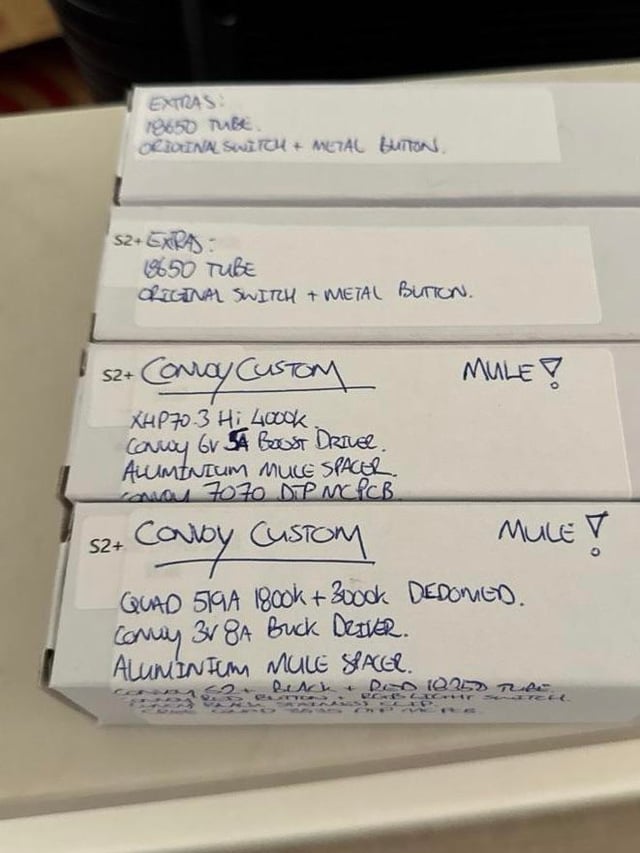 EXTRAS:
18650 TUBE.
ORIGINAL SWITCH + METAL BUTTON.
S2+ EXTRAS:
18650 TUBE
ORIGINAL SWITCH + METAL BUTTON.
S2+ CONVOY CUSTOM MULE!
XHP70.3 Hi 4000k
CONVOY 6V 5A BOOST DRIVER.
ALUMINIUM MULE SPACER.
CONVOY 7070 DTP MCPCB
S2+ CONVOY CUSTOM MULE!
QUAD 519A 1800k + 3000k DEDOMED.
CONVOY 3V 8A BUCK DRIVER.
ALUMINIUM MULE SPACER.
CONVOY S2+ BLACK + RED TUBE
BUTTON + LIGHT SWITCH.
BLACK STAINLESS CLIP.
QUAD DTP MCPCB